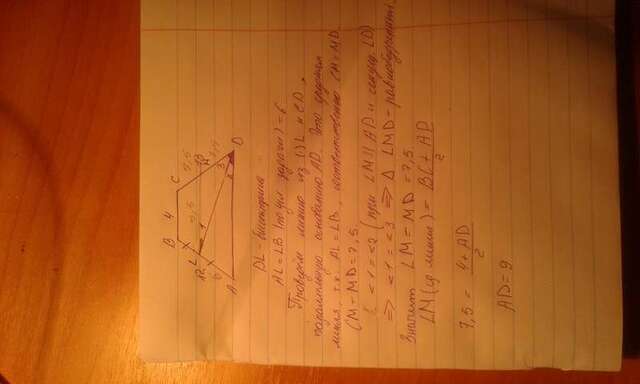 B 4 C
L 1 7,5 7,5
12 15
6 3 7,5
A D
DL - биссектриса
AL = LB (по усл задачи) = 6
Проведём линию из (·) L к CD,
параллельную основанию AD. Это средняя
линия, т.к. AL = LB, соответственно CM = MD.
CM = MD = 7,5.
∠1 = ∠2 (при LM || AD и секущ. LD)
=> ∠1 = ∠3 => Δ LMD - равнобедренный
Значит LM = MD = 7,5
LM (ср линия) = BC + AD / 2
7,5 = 4 + AD / 2
AD = 9